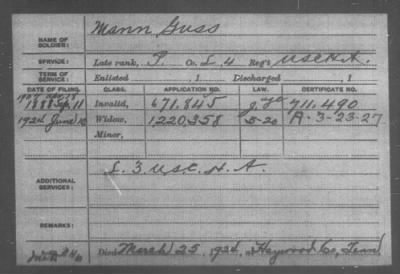 NAME OF SOLDIER: Mann Guss
SERVICE: Late rank, P. Co. L, 4 Reg't U.S.C.H.A.
TERM OF SERVICE: Enlisted , 1 Discharged , 1
DATE OF FILING. CLASS. APPLICATION NO. LAW. CERTIFICATE NO.
1888 Sep. 11 Invalid, 671.845 711.490
1924 June Widow, 1,220,358 5-20 A-3-23-27
Minor,
ADDITIONAL SERVICES: L. 3 U.S.C. H. A.
REMARKS:
Died March 25, 1924, Haywood Co, Tenn